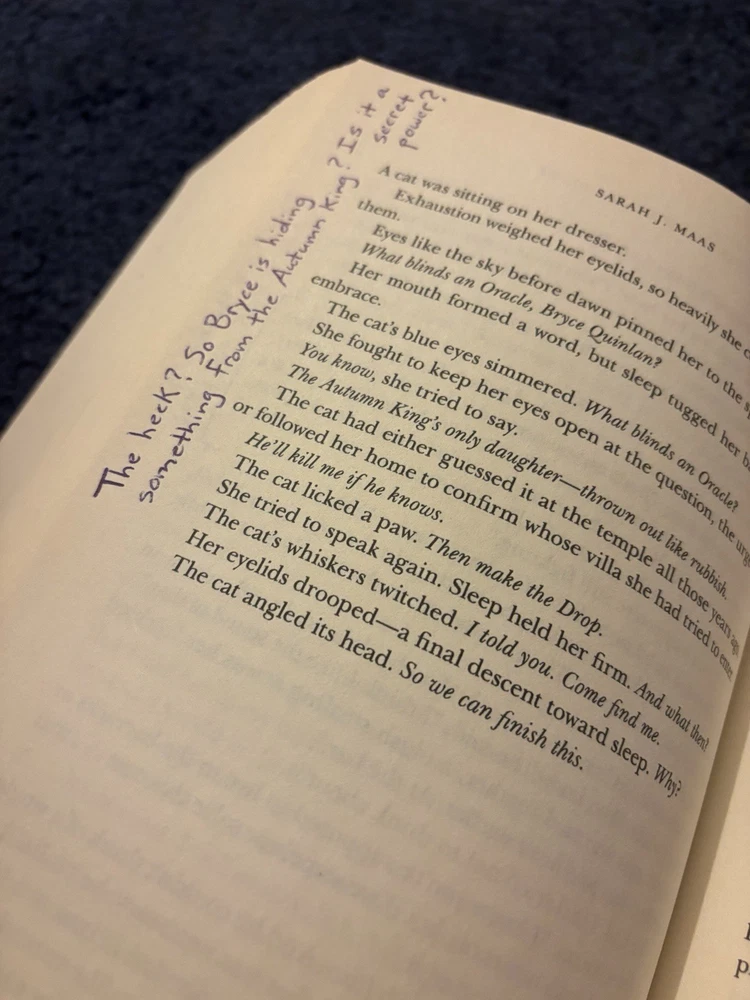 The heck? So Bryce is hiding
something from the Autumn King? Is it a
secret
power?
SARAH J. MAAS
A cat was sitting on her dresser.
Exhaustion weighed her eyelids, so heavily she
them.
Eyes like the sky before dawn pinned her to the
What blinds an Oracle, Bryce Quinlan?
Her mouth formed a word, but sleep tugged her
embrace.
The cat's blue eyes simmered. What blinds an Oracle?
She fought to keep her eyes open at the question, the
You know, she tried to say.
The Autumn King's only daughter—thrown out like rubbish.
The cat had either guessed it at the temple all those years ago,
or followed her home to confirm whose villa she had tried to enter.
He'll kill me if he knows.
The cat licked a paw. Then make the Drop.
She tried to speak again. Sleep held her firm. And what then?
The cat's whiskers twitched. I told you. Come find me.
Her eyelids drooped—a final descent toward sleep. Why?
The cat angled its head. So we can finish this.